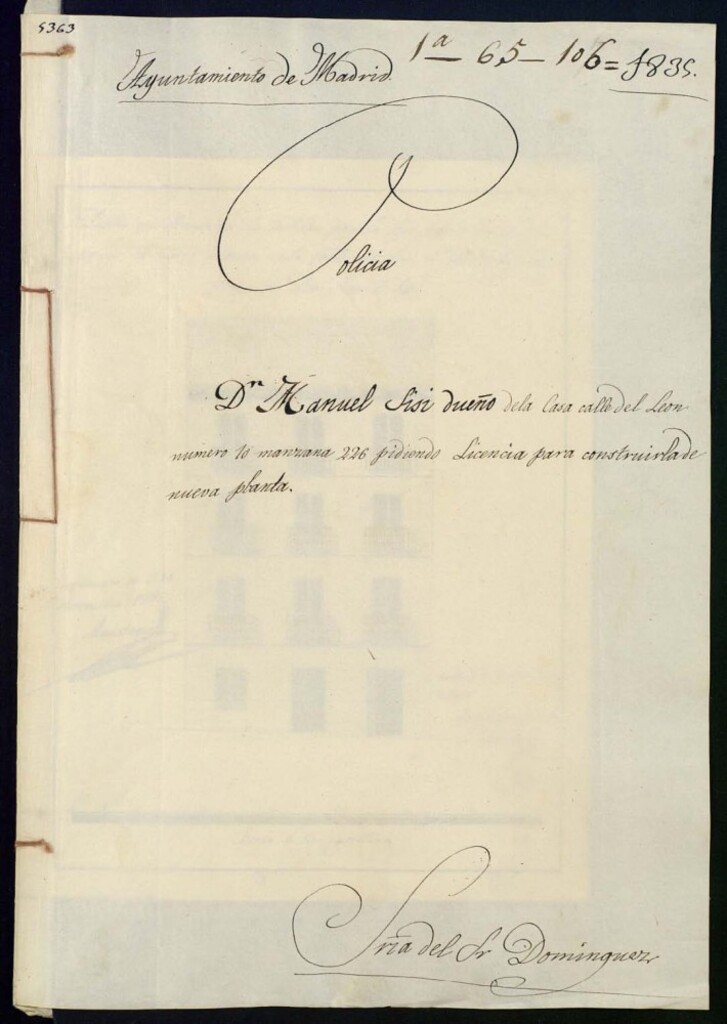 5363
1ª - 65 - 106 = 1835.
Ayuntamiento de Madrid.
Policia
Dn Manuel Sisi dueño dela Casa calle del Leon
número 10 manzana 226 pidiendo Licencia para construirla de
nueva planta.
Sría del Sr Dominguez